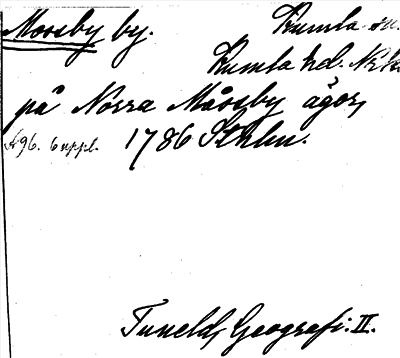 Mossby by. Kumla sn.
Kumla hd. Nrke
på Norra Måssby ägor,
s 96. 6 uppl. 1786 Sthlm.
Tuneld, Geografi. II.